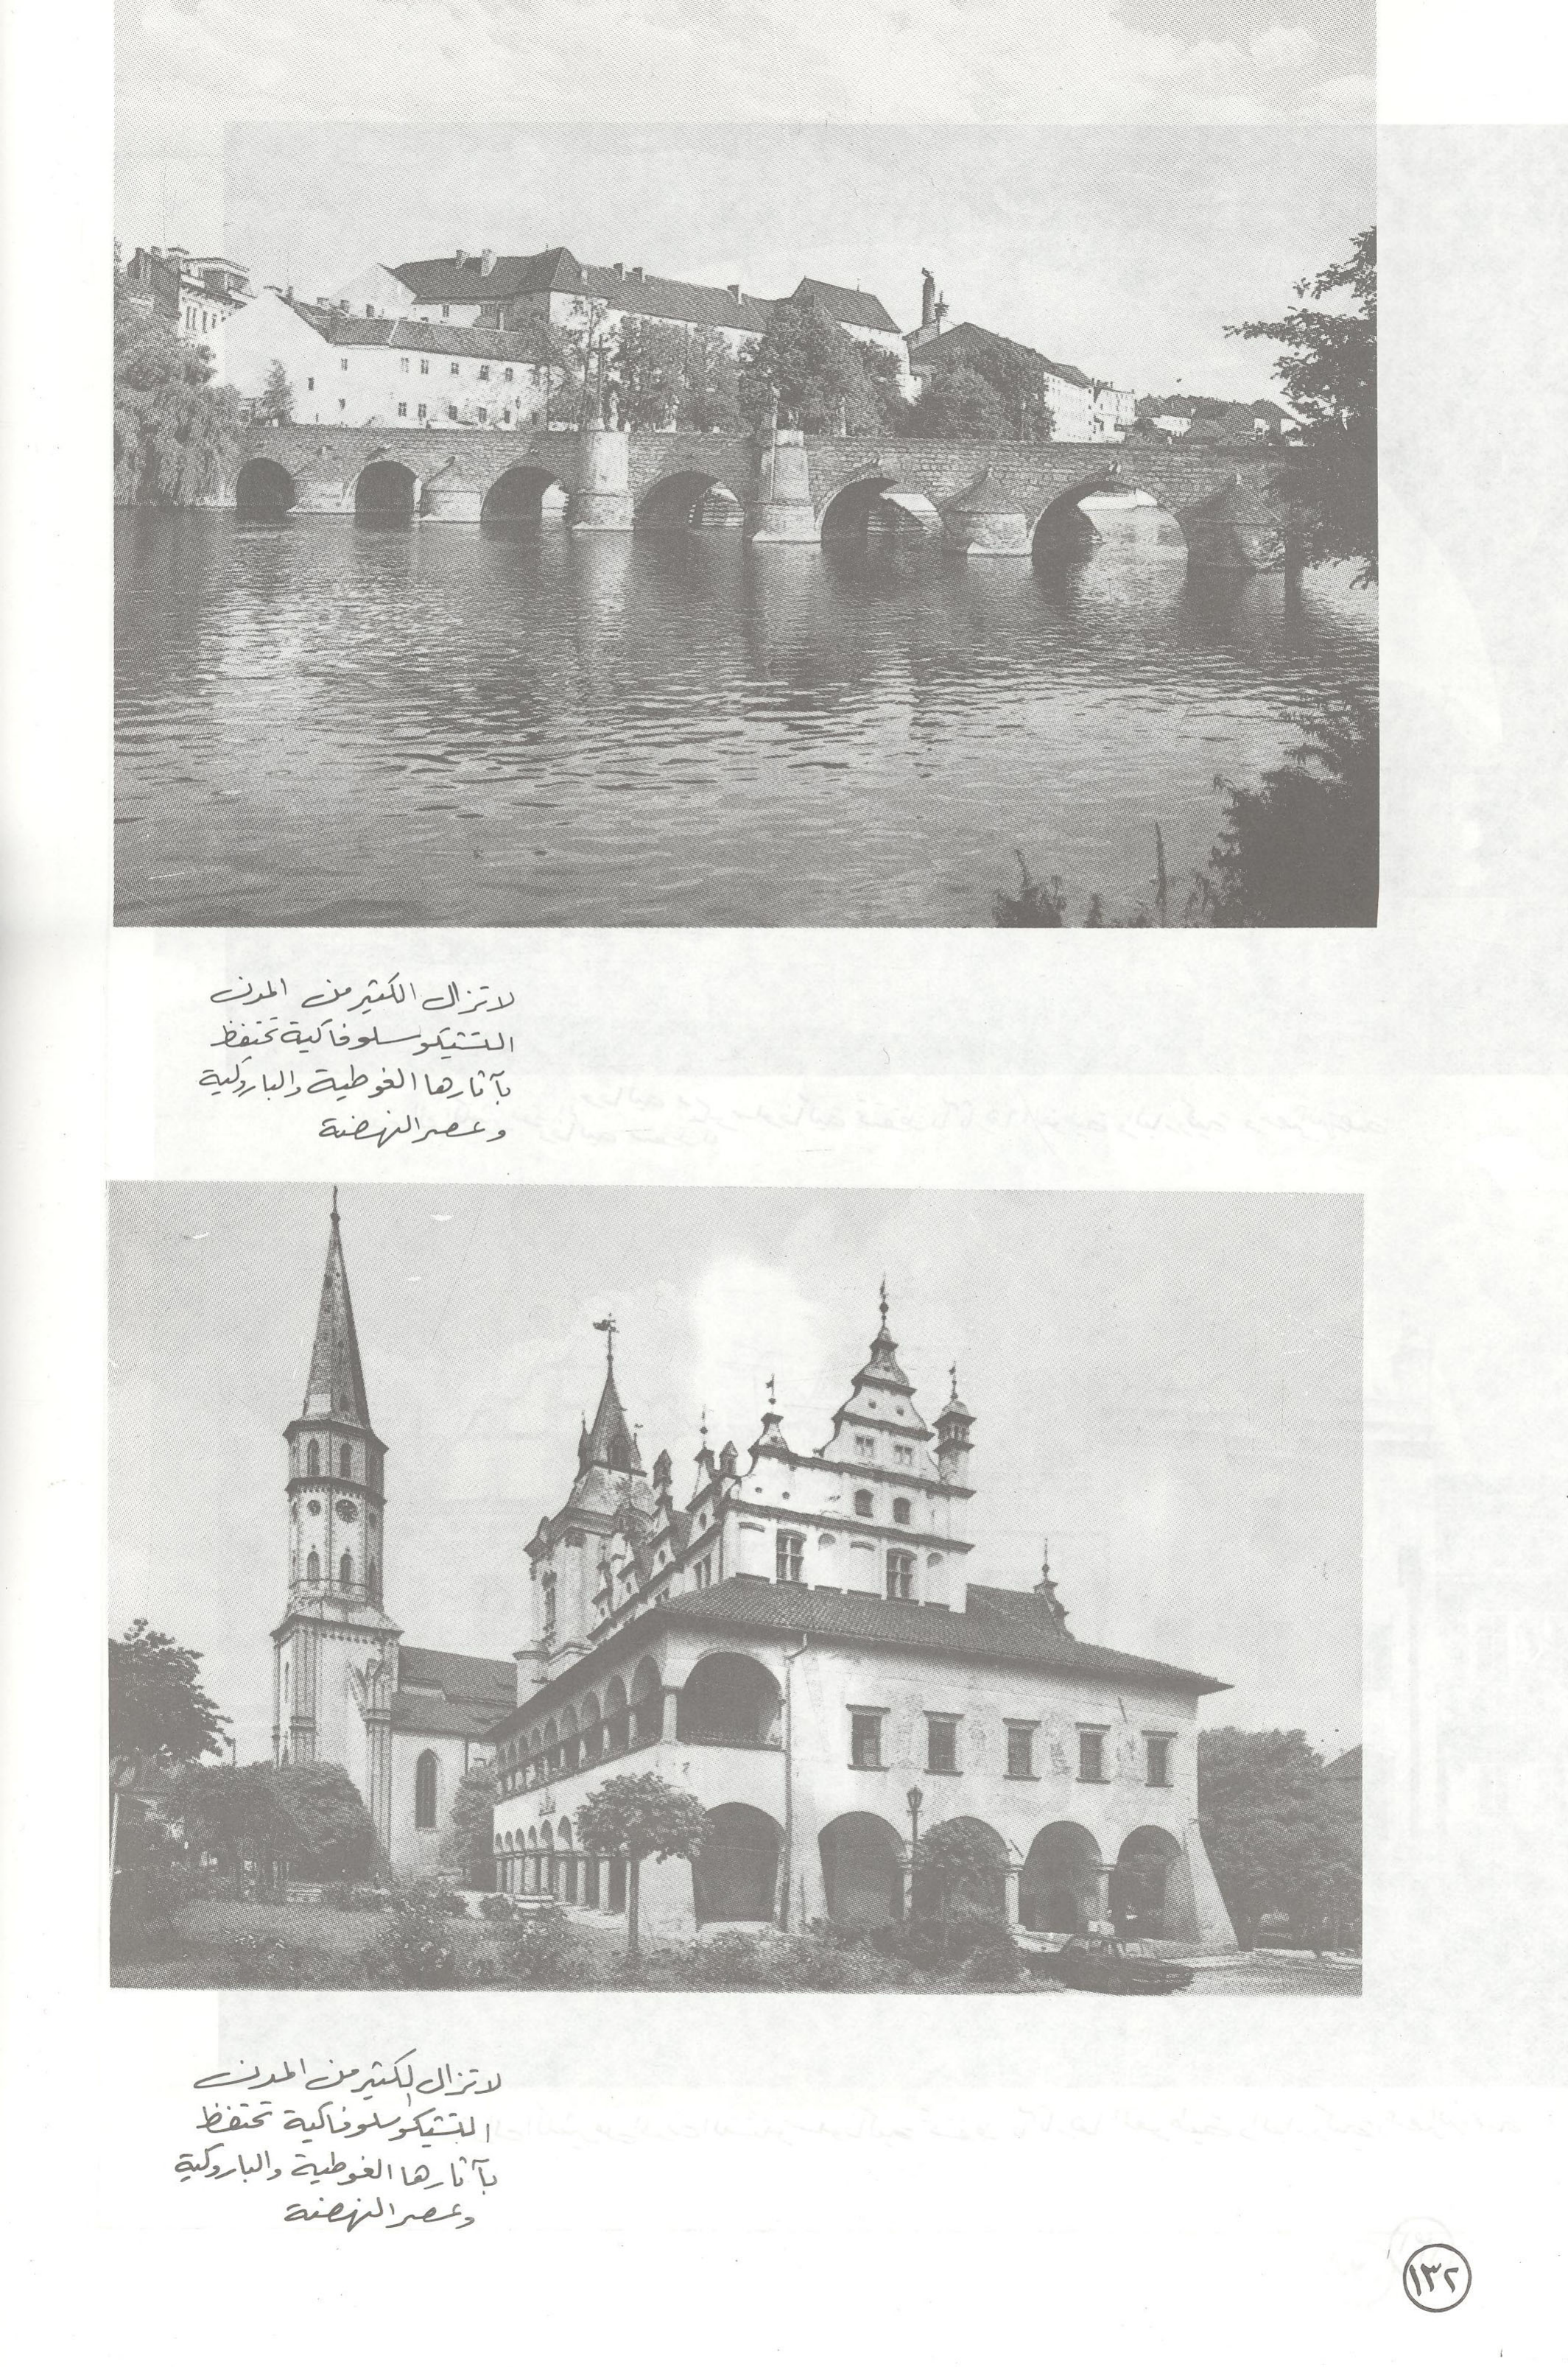 لا تزال الكثير من المدن
التشيكوسلوفاكية تحتفظ
بآثارها الغوطية والباروكية
وعصر النهضة
لا تزال الكثير من المدن
التشيكوسلوفاكية تحتفظ
بآثارها الغوطية والباروكية
وعصر النهضة
١٣٢